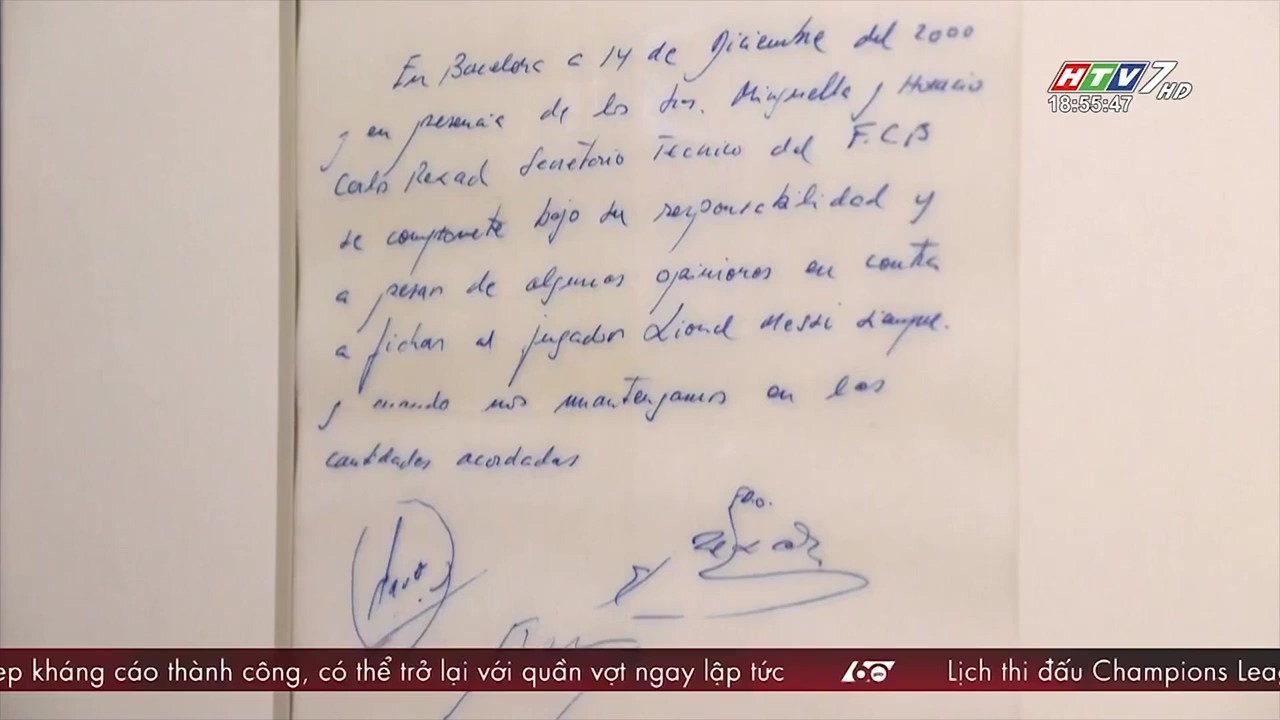 En Barcelona a 14 de Diciembre del 2000
y en presencia de los Srs. Minguella y Horacio
Carlos Rexach Secretario Técnico del F.C.B
se compromete bajo su responsabilidad y
a pesar de algunas opiniones en contra
a fichar al jugador Lionel Messi siempre
y cuando nos mantengamos en las
cantidades acordadas
Fdo.
HTV7 HD
18:55:47
ep kháng cáo thành công, có thể trở lại với quần vợt ngay lập tức
60
Lịch thi đấu Champions Leag